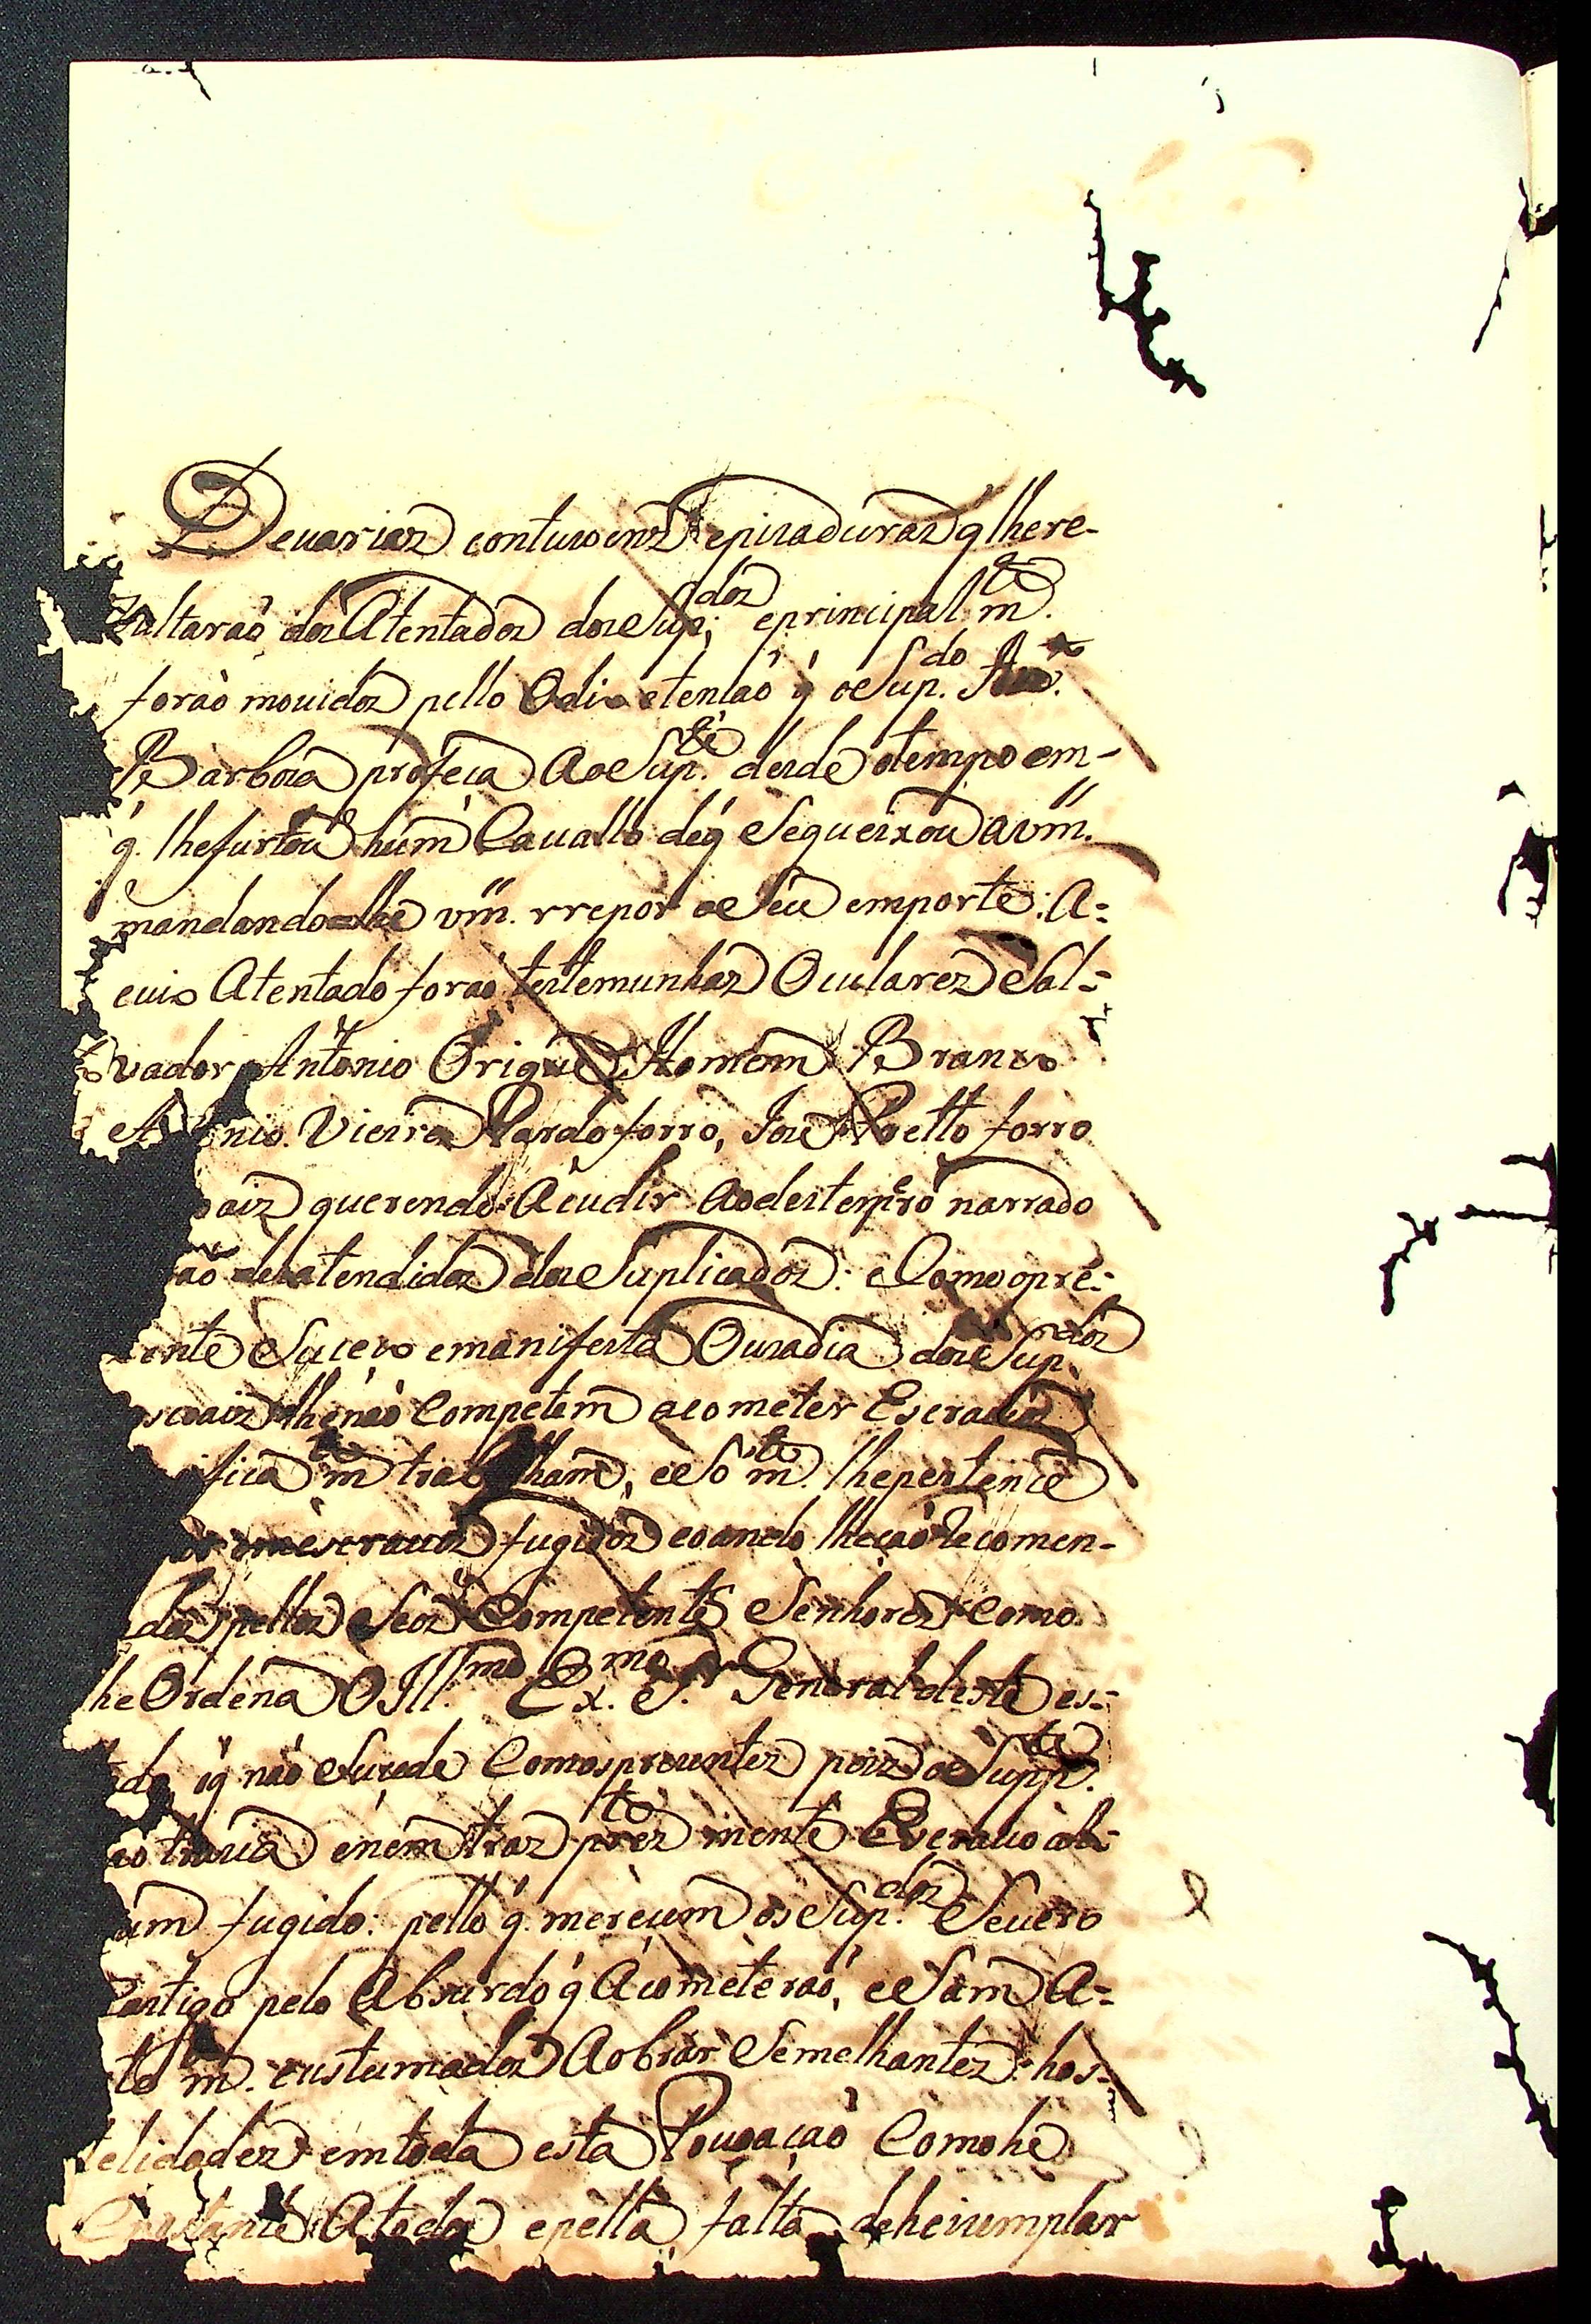 De uarias contusoens e pizaduras q̃ lhere-
zultaraõ dos Atentados dos Sup.dos e principal m.te
foraõ mouidos pello Odio etençaõ q̃ o Sup.do
Barboza profeça Ao Sup.te desde otempo em-
q̃. lhefurtou hum Cauallo deq̃ Sequeixou avm̃.
mandandolhe vm̃. rrepor o Seu emporte: A=
cuio Atentado foraõ testemunhas Oculares Sal=
vador Antonio Origue Homem Branco
Antonio Vieira Pardo forro, Joze Pretto forro
querendo Acudir Aodestempero narrado
desatendidos dos Suplicados: eComo opre=
zente Suceço emanifesta Ouzadia dos Sup.dos
lhenaõ Competem acometer Escrauos
m.te trabalham, e So m.te lhepertence
escrauos fugidos coando lheçaõ Recomen-
dados pellos Seos Competentes Senhores Como
lhe Ordena O Ill.mo Ex.mo S.r General deste es=
tado oq̃ naõ Sucede Comosprezentes pois o Supp.te
enem tras prez.te mente Escrauo al=
gum fugido: pello q̃. mereçem os Sup.dos Seuero
Castigo pelo Absurdo q̃ Acometeraõ, e Sam A=
to m. custumados Aobrar Semelhantes hos=
telidades emtoda esta Pouoaçaõ Comohe
Constante Atodos epella falta deheixemplar